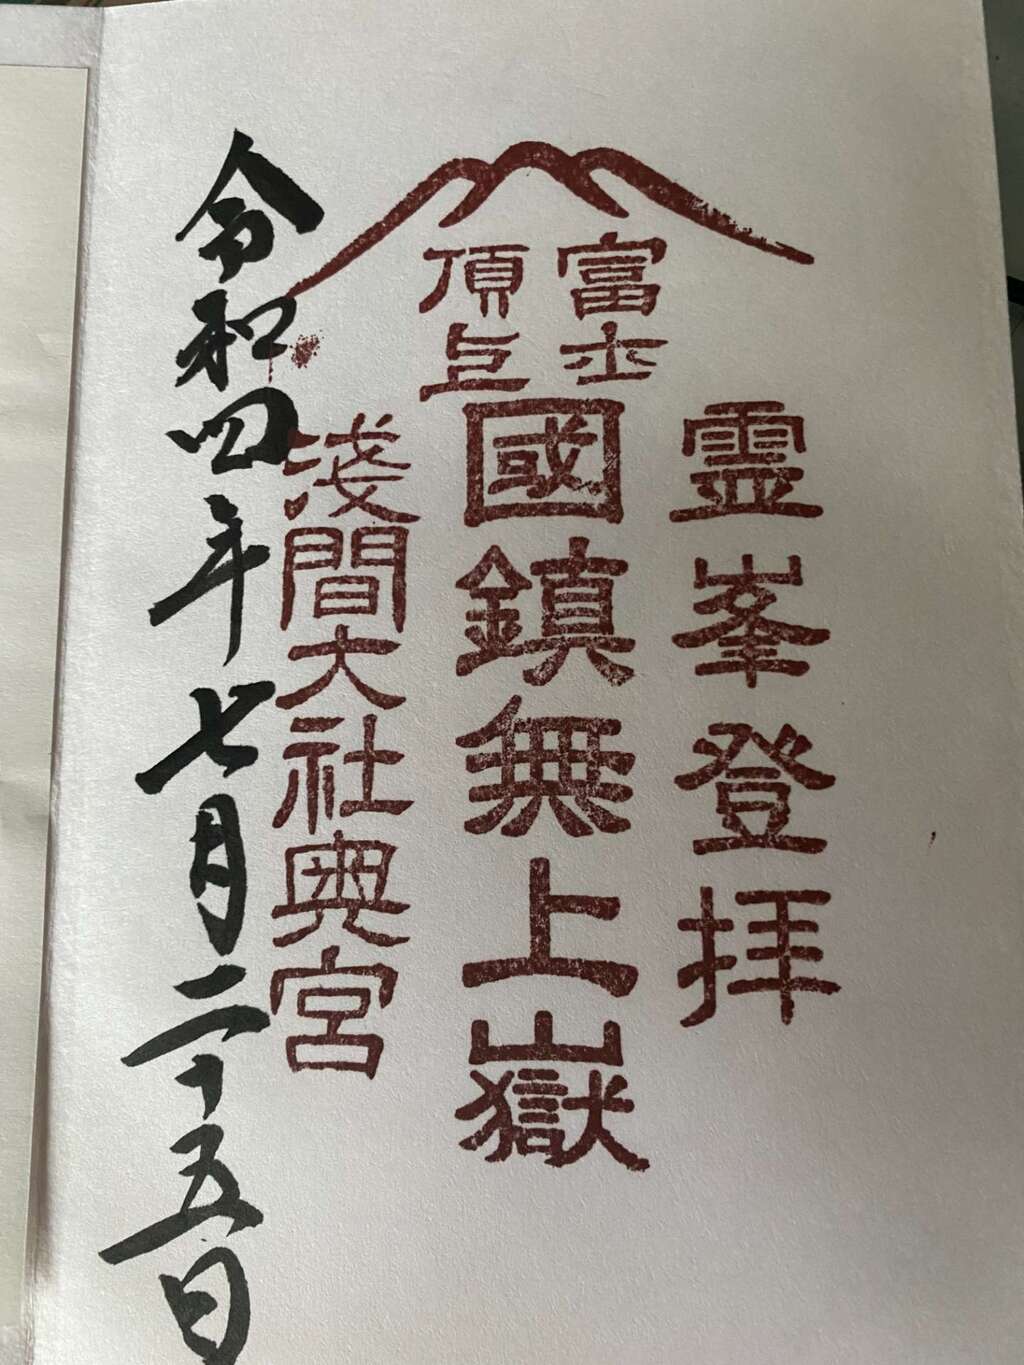 霊峯登拝
富士
頂上
國鎮無上嶽
淺間大社奥宮
令和四年七月二十五日